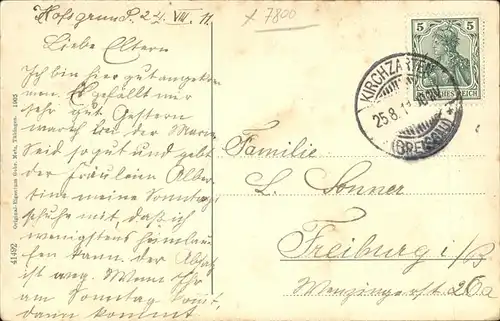 Hofsgrund P. 24. VIII. 11
x 7800
Liebe Eltern
Ich bin hier gut angekom-
men. Es gefällt mir
sehr gut Gestern
war ich der Marie
Seid so gut und gebt
der Fräulein Alber-
tine meine Sonntags
schuhe mit, daß ich
wenigstens heimlau-
fen kann. der Absatz
ist weg. Wenn Ihr
am Sonntag kommt,
dann kommt
41492
Original-Eigentum Gebr. Metz, Tübingen. 1905
5 5
REICH
KIRCHZARTEN
25.8.11
(BREISGAU)
Familie
L. Sonner
Freiburg i/B
Wenzingerst 26a